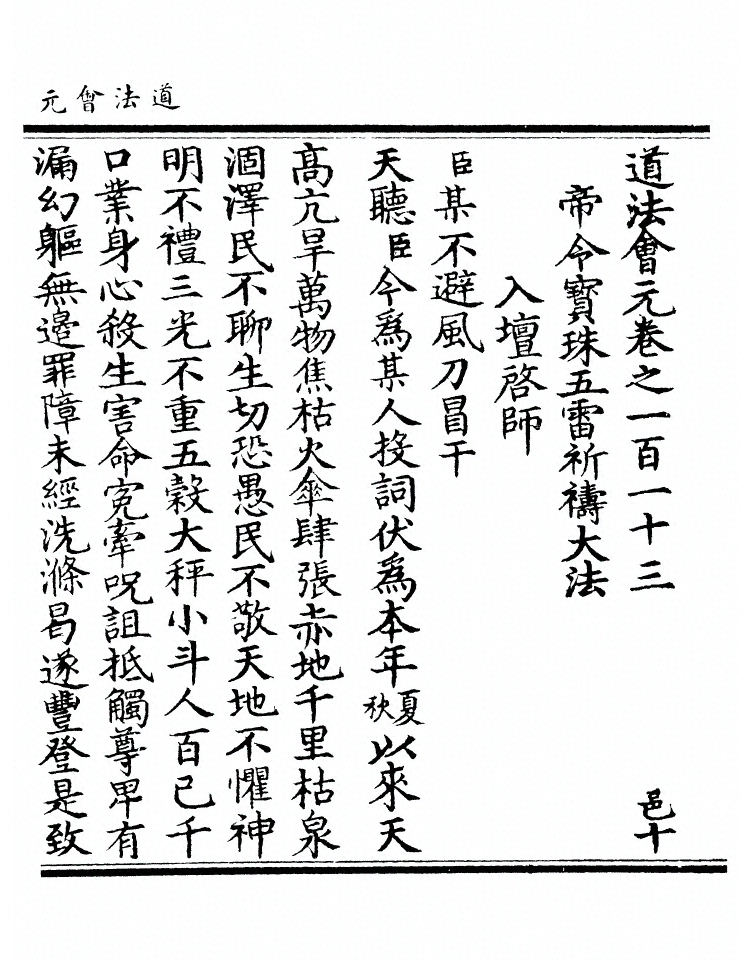 道法會元
道法會元卷之一百一十三 邑十
帝令寶珠五雷祈禱大法
入壇啓師
臣某不避風刀冒干
天聽臣今爲某人投詞伏爲本年夏秋以來天
高亢旱萬物焦枯火傘肆張赤地千里枯泉
涸澤民不聊生切恐愚民不敬天地不懼神
明不禮三光不重五穀大秤小斗人百己千
口業身心殺生害命寃牽呪詛抵觸尊卑有
漏幻軀無邊罪障未經洗滌曷遂豐登是致